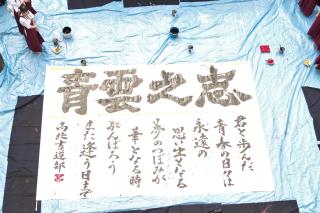 青雲之志
君と歩んだ
青春の日々は
永遠の
思い出となる
夢のつぼみが
華となる時
歌んばろう
また逢う日まで
高北書道部